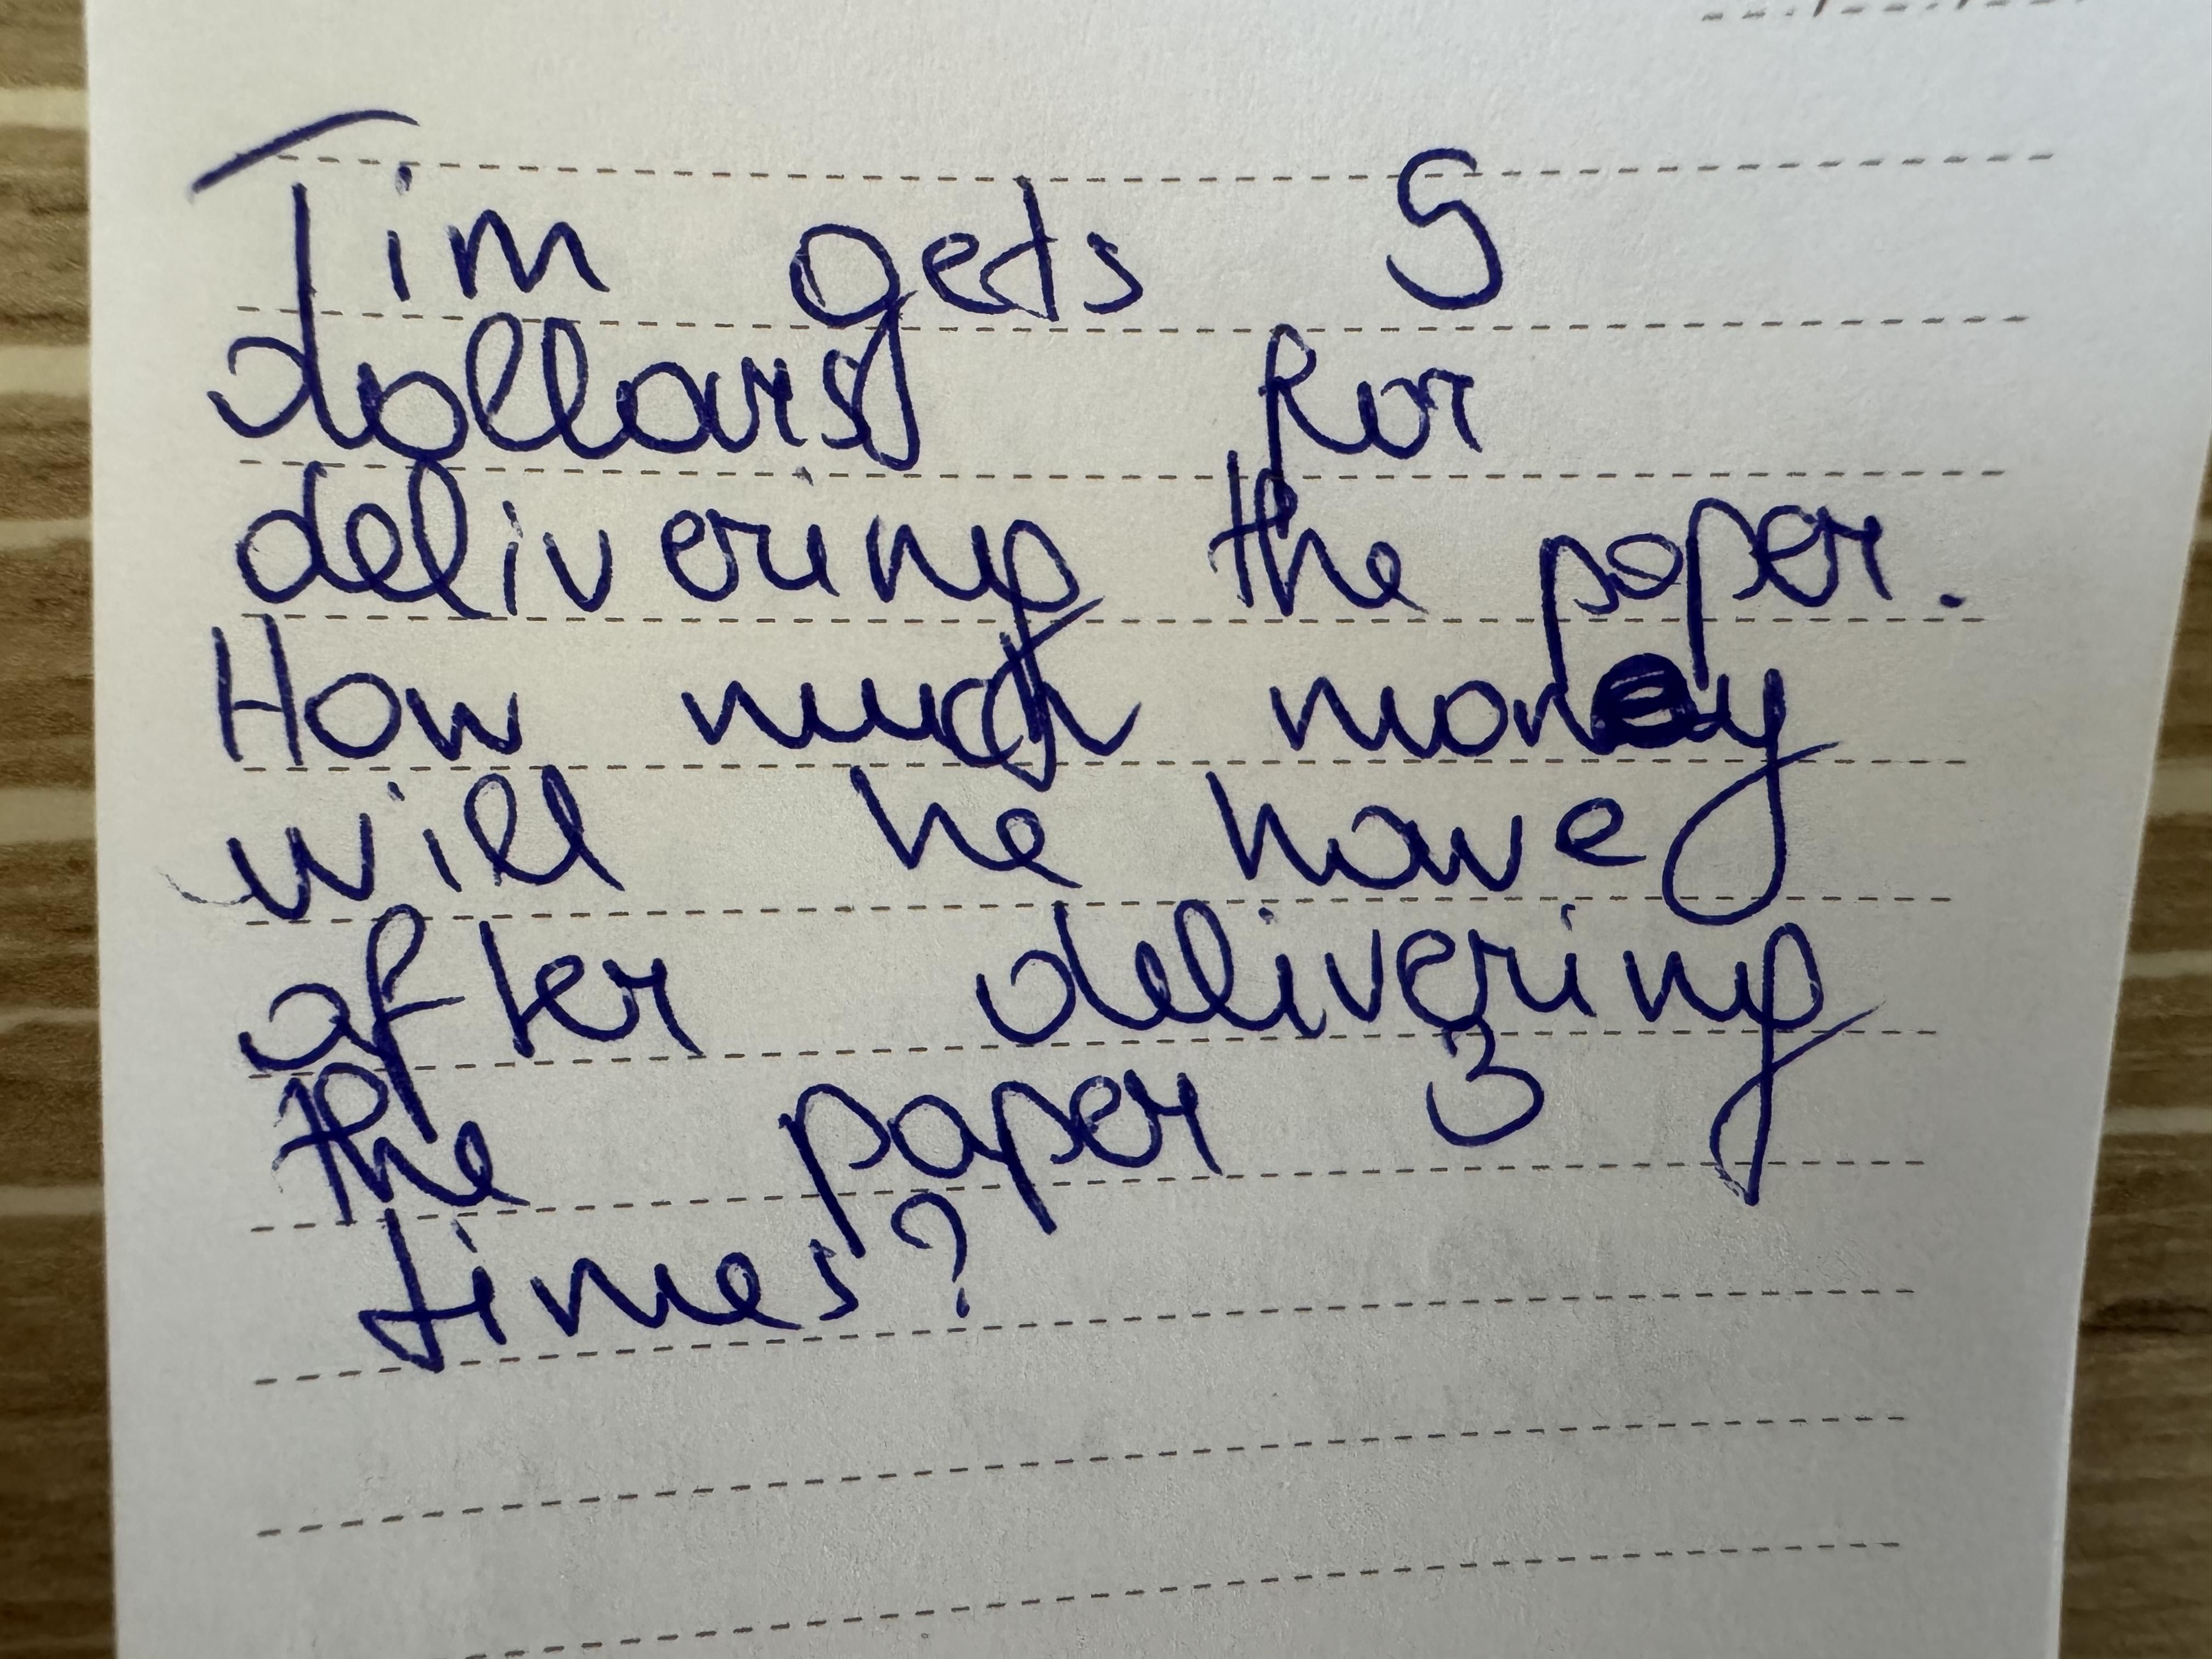 Tim gets 5
dollars for
delivering the paper.
How much money
will he have
after delivering
the paper 3
times?